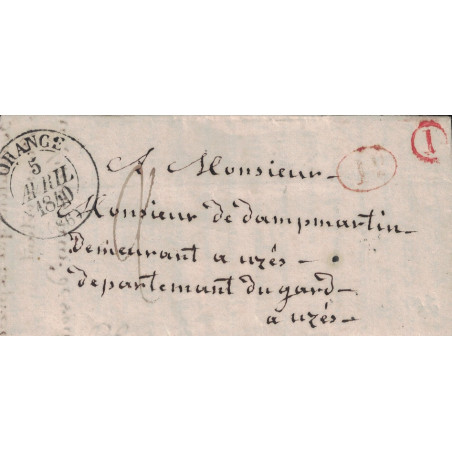 ORANGE
5
AVRIL
1840
(86)
1
A Monsieur
Monsieur de dampmartin
demeurant a uzés
departement du gard
a uzés